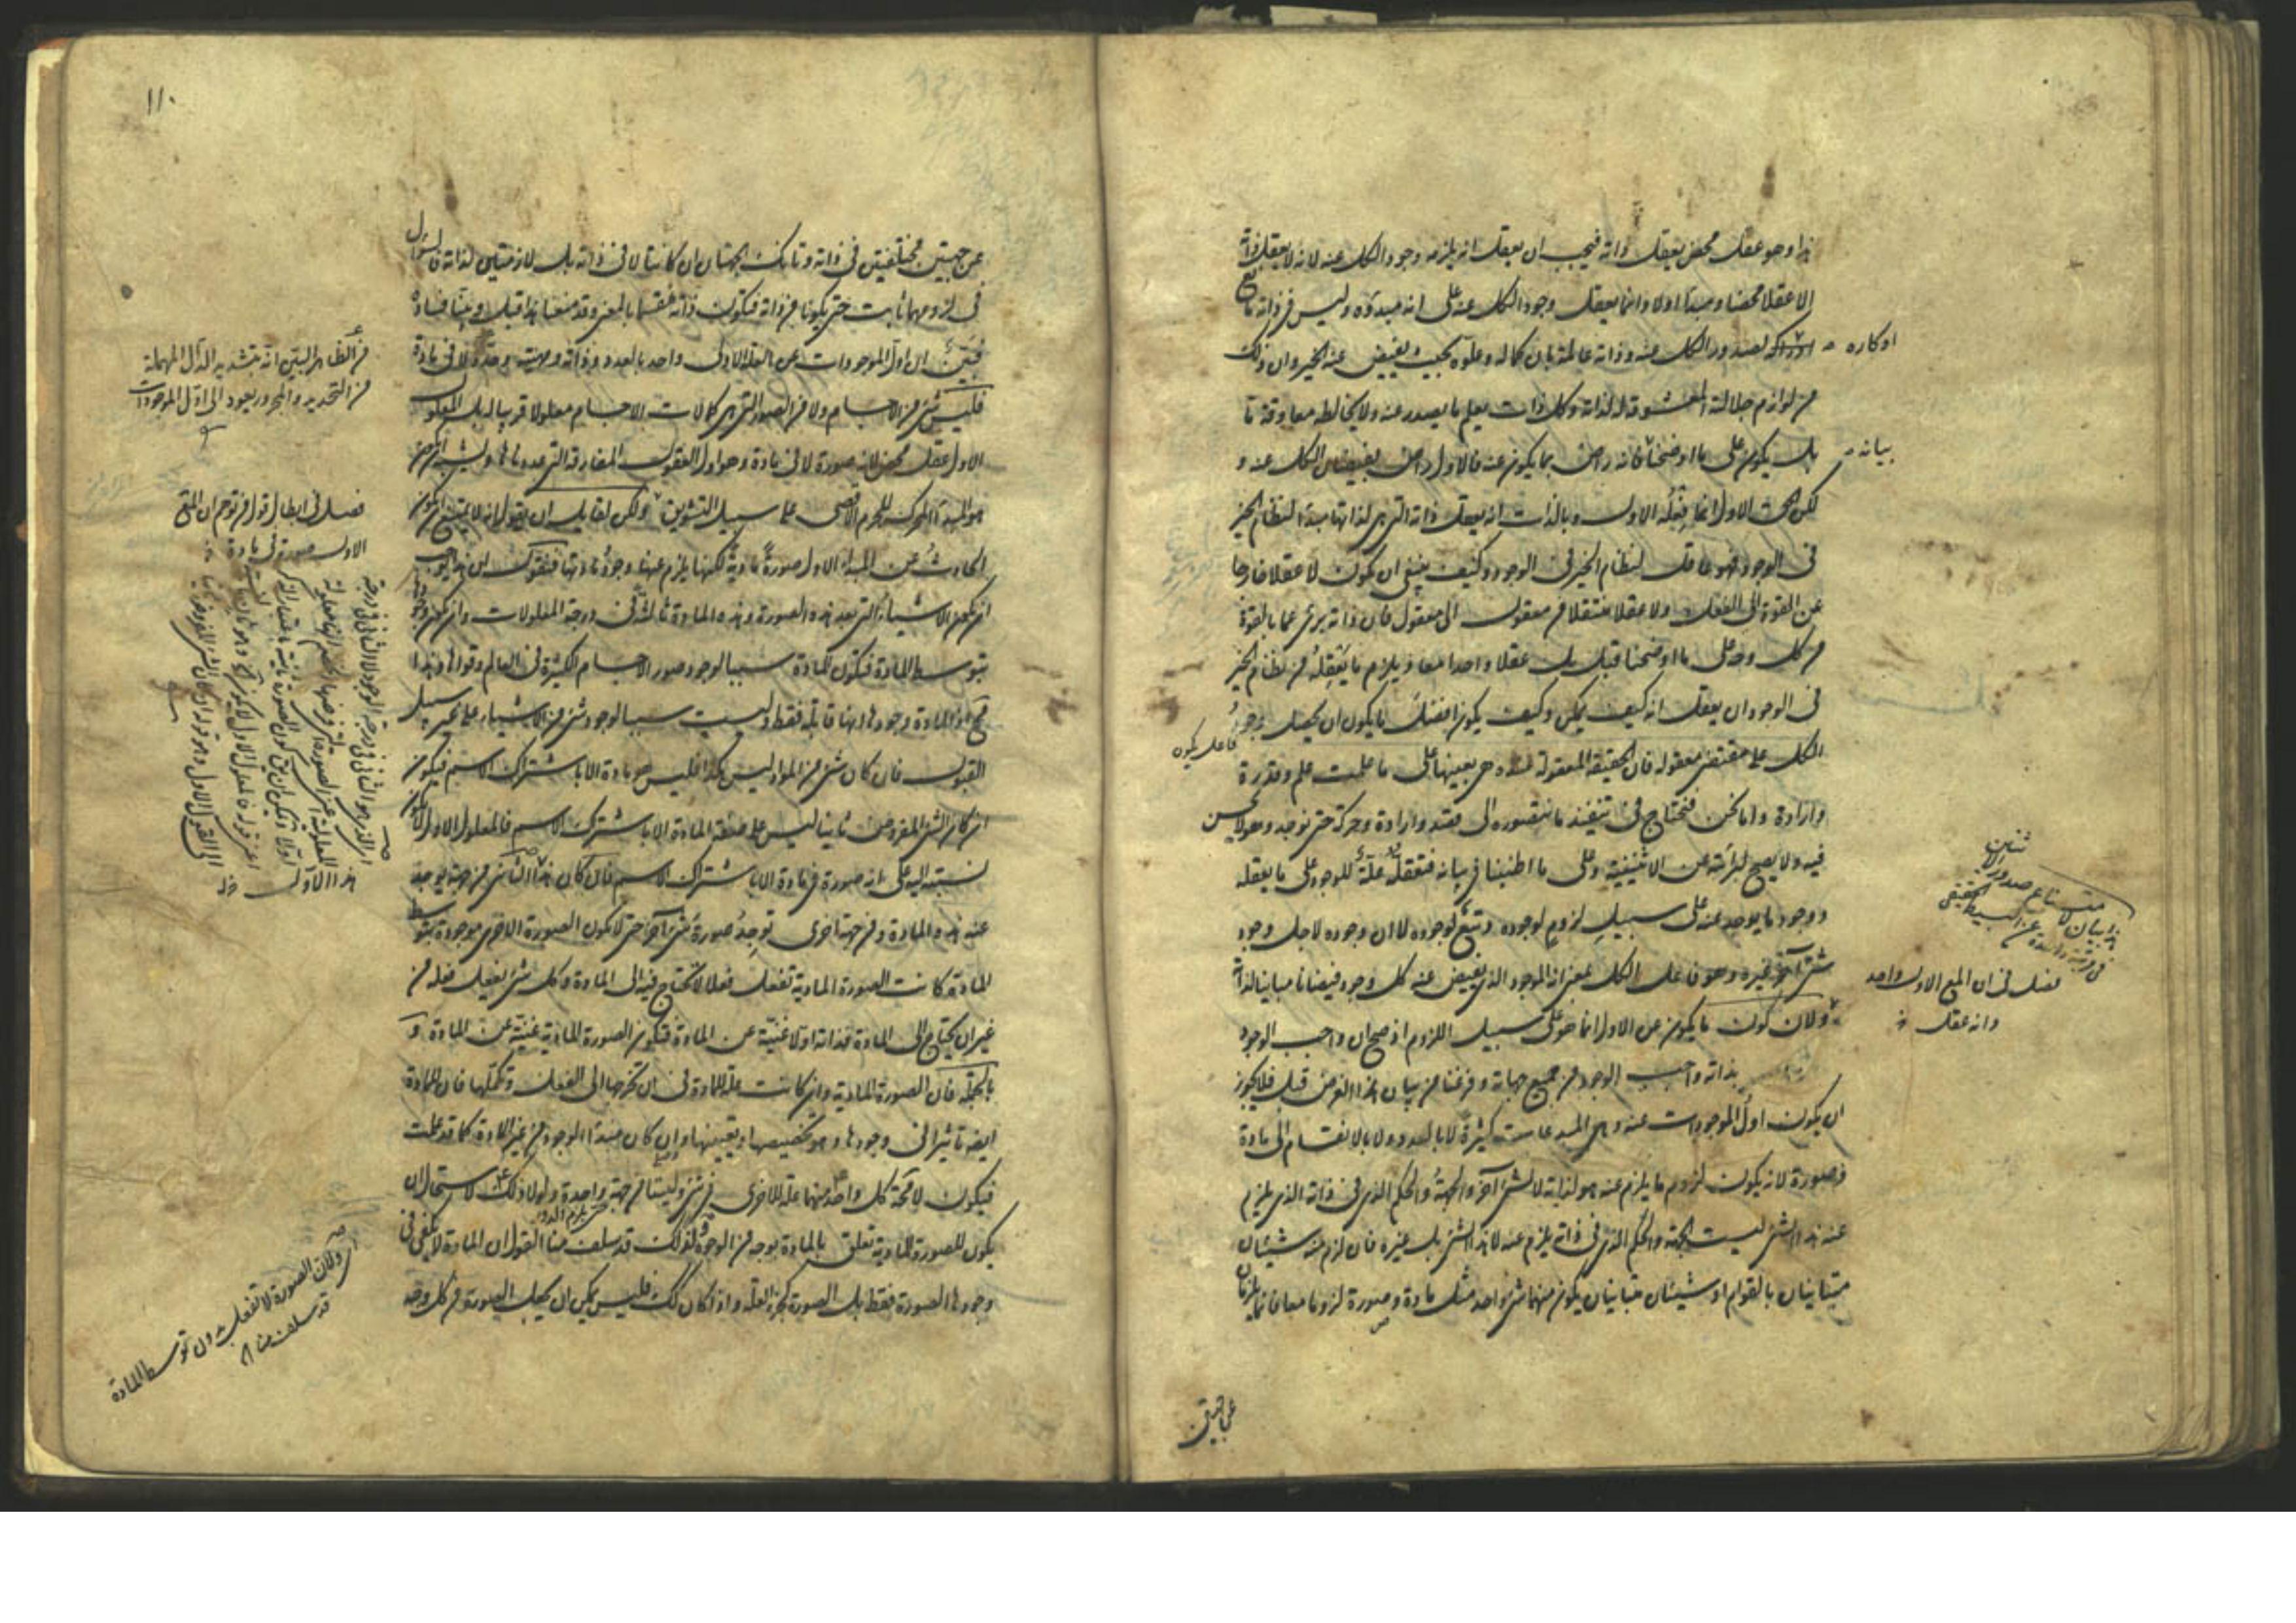 هذا وهو عقل محض يعقل ذاته فيجب ان يعقل انه يلزمه وجود الكل عنه لانه لا يعقل ذاته
الا عقلا محضا ومبدأ اولا وانما يعقل وجود الكل عنه على انه مبدؤه وليس فى ذاته مانع
لصدور الكل عنه وذاته عالمة بان كماله وعلوه بحيث يفيض عنه الخير وان ذلك
او كاره
من لوازم جلالته المعشوقة له لذاتها وكل ذات يعلم ما يصدر عنه ولا يخالطه معاوقة ما
بل يكون على ما اوضحنا فانه راض بما يكون عنه فالاول راض بفيضان الكل عنه و
بيانه
لكن الحق الاول انما فعله الاول وبالذات انه يعقل ذاته التى هى لذاتها مبدأ لنظام الخير
فى الوجود فهو عاقل لنظام الخير فى الوجود وكيف ينبغى ان يكون لا عقلا خارجا
عن القوة الى الفعل ولا عقلا منتقلا من معقول الى معقول فان ذاته برئ عما بالقوة
من كل وجه على ما اوضحنا قبل بل عقلا واحدا معا ويلزم ما يعقله من نظام الخير
فى الوجود ان يعقل انه كيف يمكن وكيف يكون افضل ما يكون ان يحصل وجود
الكل على مقتضى معقوله فان الحقيقة المعقولة عنده هى بعينها على ما علمت علم وقدرة
وارادة واما نحن فنحتاج فى تنفيذ ما نتصوره الى قصد وارادة وحركة حتى نوجد وهو لا يحسن
فيه ولا يصح لبرائته عن الاثنينية وعلى ما اطنبنا فى بيانه فتعقله علة للوجود على ما يعقله
ووجود ما يوجد عنه على سبيل لزوم لوجوده وتبع لوجوده لا ان وجوده لاجل وجود
شئ آخر غيره وهو فاعل الكل بمعنى انه الموجود الذى يفيض عنه كل وجود فيضانا مباينا لذاته
ولان كون ما يكون عن الاول انما هو على سبيل اللزوم اذ صح ان واجب الوجود
بذاته واجب الوجود من جميع جهاته وفرغنا من بيان هذا الغرض قبل فلا يجوز
ان يكون اول الموجودات عنه وهى المبدعات كثيرة لا بالعدد ولا بالانقسام الى مادة
وصورة لانه يكون لزوم ما يلزم عنه هو لذاته لا لشئ آخر والجهة والحكم الذى فى ذاته الذى يلزم
عنه هذا الشئ ليست الجهة والحكم الذى فى ذاته يلزم عنه لا هذا الشئ بل غيره فان لزم منه شيئان
متباينان بالقوام او شيئان متباينان يكون منهما شئ واحد مثل مادة وصورة لزوما معا فانما يلزمان
فصل فى ان المع الاول واحد
وانه عقل
عن جهتين
١١٠
عن جهتين مختلفتين فى ذاته وتانك الجهتان ان كانتا لا فى ذاته بل لازمتين لذاته فالسؤال
فى لزومهما ثابت حتى يكونا من ذاته فيكون ذاته منقسما بالمعنى وقد منعنا هذا قبل وبينا فساده
فبين ان اول الموجودات عن العلة الاولى واحد بالعدد وذاته وماهيته وحده لا فى مادة
فليس شئ من الاجسام ولا من الصور التى هى كمالات الاجسام معلولا قريبا له بل المعلول
الاول عقل محض لانه صورة لا فى مادة وهو اول العقول المفارقة التى عددناها ويشبه ان يكون
هو المبدأ المحرك للجرم الاقصى على سبيل التشويق ولكن لقايل ان يقول انه لا يمتنع ان يكون
الحادث عن المبدأ الاول صورة مادية لكنها يلزم عنها وجود مادتها فنقول ان هذا يوجب
ان يكون الاشياء التى بعد هذه الصورة وهذه المادة ثالثة فى درجة المعلولات وان يكون وجودها
بتوسط المادة فيكون المادة سببا لوجود صور الاجسام الكثيرة فى العالم وقواها وهذا
مح اذ المادة وجودها انها قابلة فقط وليست سببا لوجود شئ من الاشياء على غير سبيل
القبول فان كان شئ من المواد ليس هكذا فليس هو مادة الا باشتراك الاسم فيكون
ان كان الشئ المفروض ثانيا ليس على صفة المادة الا باشتراك الاسم فالمعلول الاول لا يكون
نسبته اليه على انه صورة فى مادة الا باشتراك الاسم فان كان هذا الثانى من جهة يوجد
عنه هذه المادة ومن جهة اخرى توجد صورة شئ آخر حتى لا يكون الصورة الاخرى موجودة بتوسط
المادة كانت الصورة المادية تفعل فعلا لا يحتاج فيه الى المادة وكل شئ يفعل فعله من
غير ان يحتاج الى المادة فذاته اولا غنية عن المادة فتكون الصورة المادية غنية عن المادة و
بالجملة فان الصورة المادية وان كانت علة للمادة فى ان تخرجها الى الفعل وتكملها فان للمادة
ايضا تأثيرا فى وجودها وهو تخصيصها وتعيينها وان كان مبدأ الوجود من غير المادة كما قد علمت
فيكون لا محة كل واحد منهما علة للاخرى فى شئ وليستا من جهة واحدة ولولا ذلك لاستحال ان
يكون للصورة المادية تعلق بالمادة بوجه من الوجوه ولذلك قد سلف منا القول ان المادة لا يكفى فى
وجودها الصورة فقط بل الصورة كجزء العلة واذا كان كك فليس يمكن ان يجعل الصورة من كل وجه
من الظاهر البين انه بتشديد الدال المهملة
من التحديد والمجرور يعود الى اول الموجودات
فصل فى ابطال قول من توهم ان المع
الاول صورة فى مادة
اى ولان الصورة لا تفعل بدون توسط المادة
قد سلف منا